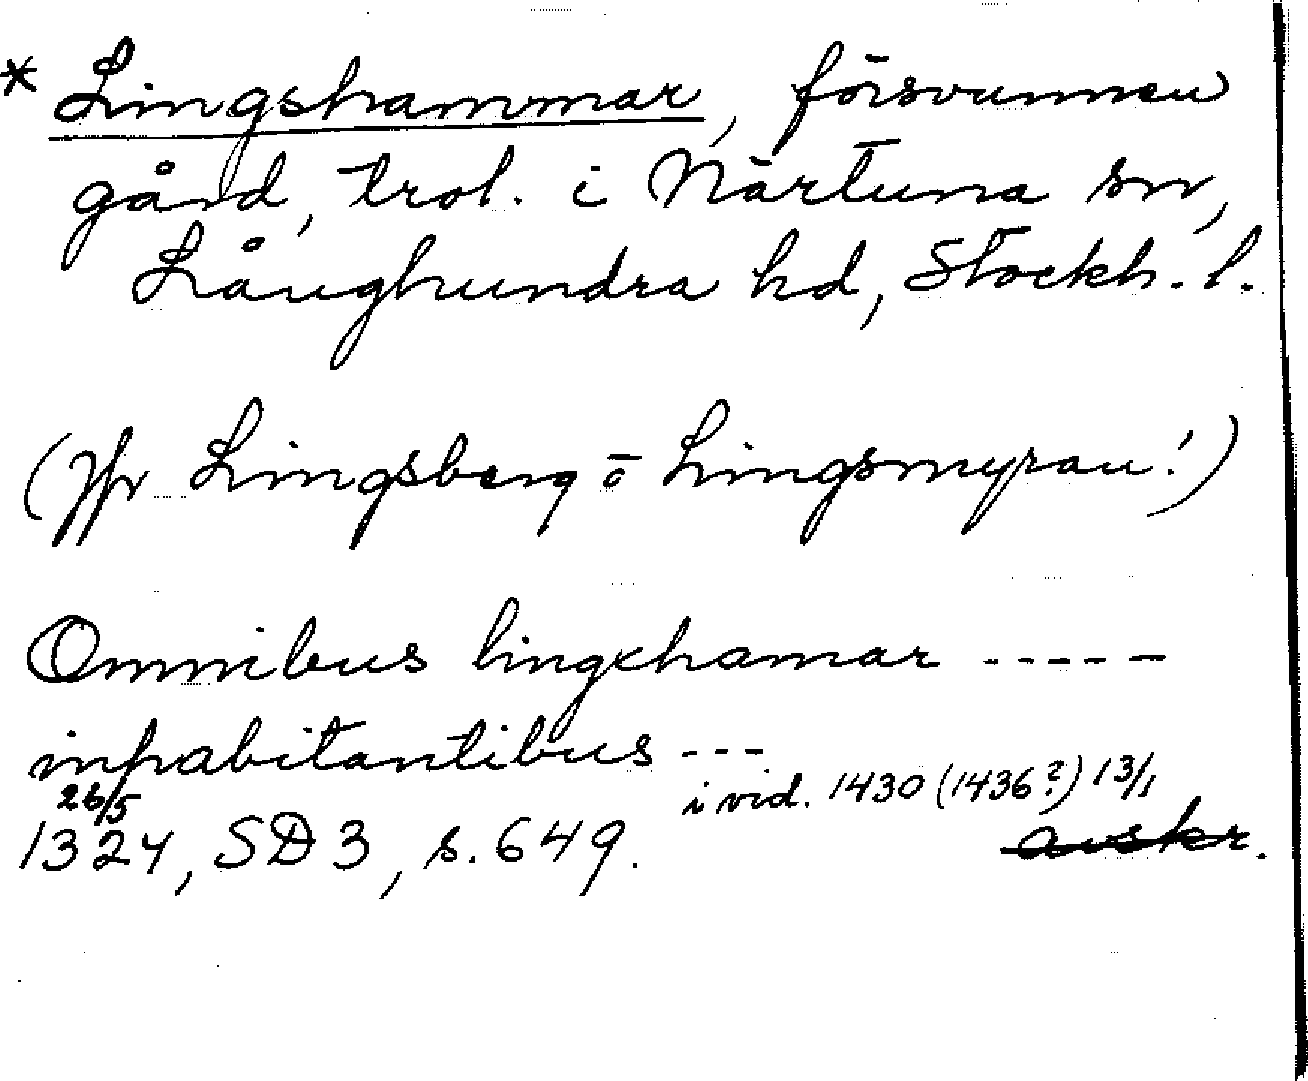 * Lingshammar, försvunnen
gård, trol. i Närtuna sn,
Långhundra hd, Stockh. l.
(Jfr Lingsberg o Lingsmyran!)
Omnibus lingxhamar -----
inhabitantibus ---
26/5 i vid. 1430 (1436?) 13/1
1324, SD 3, s. 649. avskr.